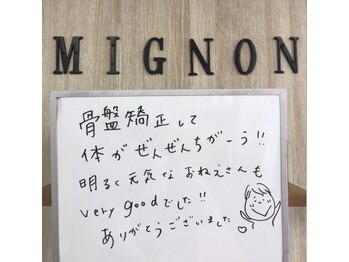 MIGNON
骨盤矯正して
体がぜんぜんちがーう!!
明るく元気なおねえさんも
very goodでした!!
ありがとうございました